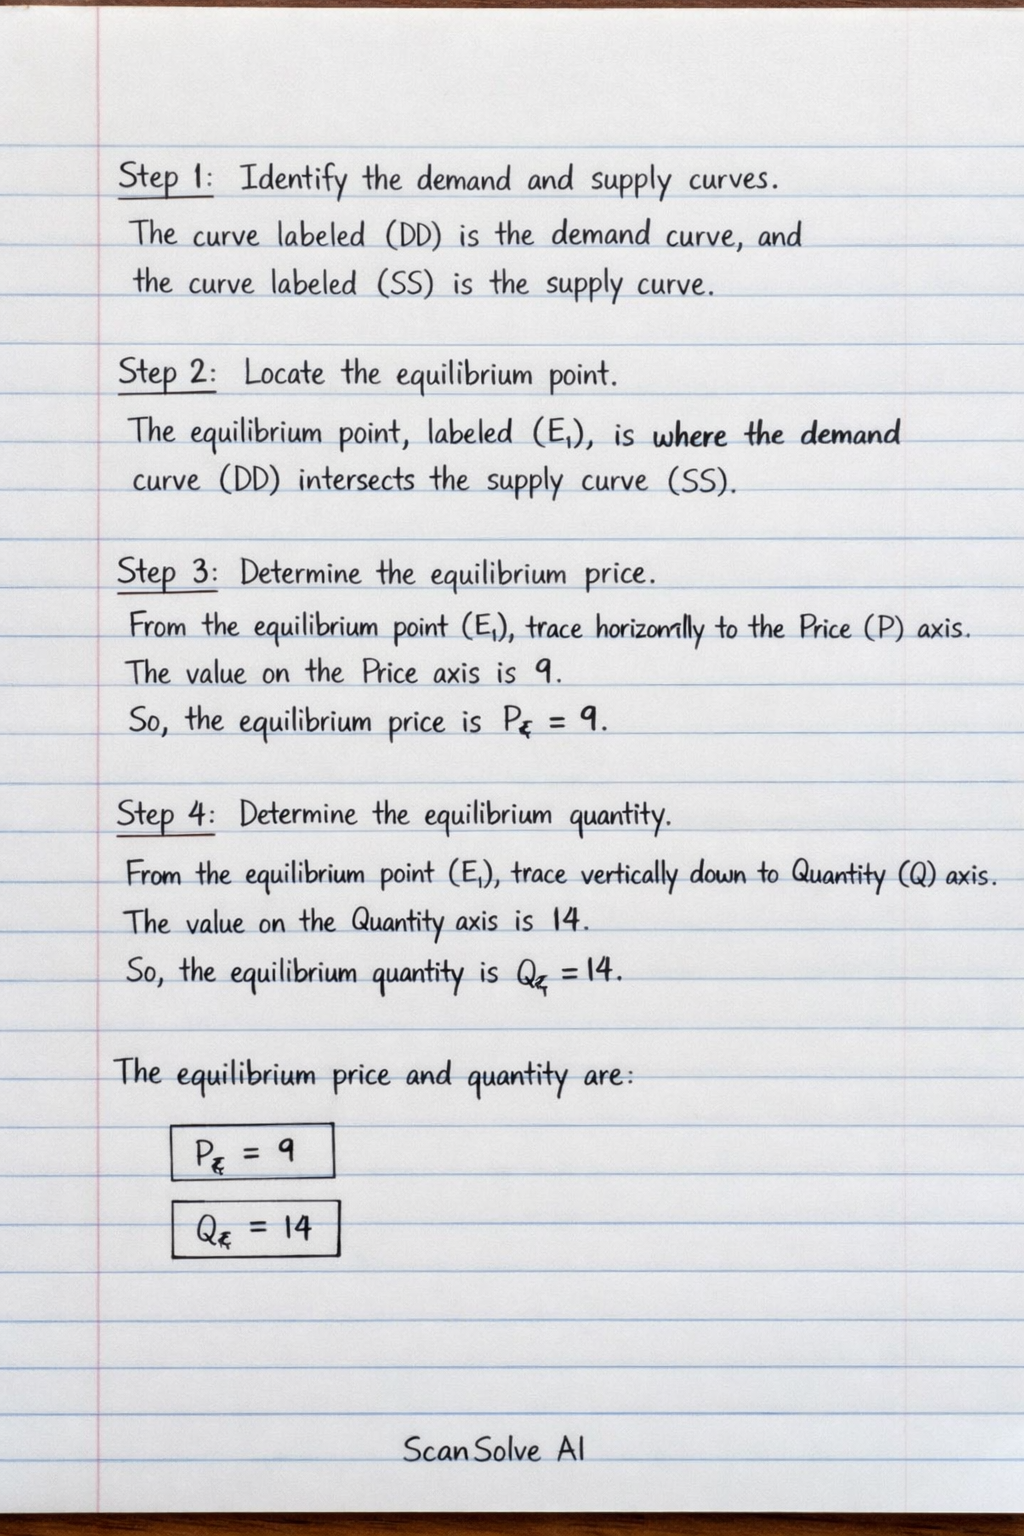 Step 1: Identify the demand and supply curves.
The curve labeled (DD) is the demand curve, and
the curve labeled (SS) is the supply curve.
Step 2: Locate the equilibrium point.
The equilibrium point, labeled (E₁), is where the demand
curve (DD) intersects the supply curve (SS).
Step 3: Determine the equilibrium price.
From the equilibrium point (E₁), trace to the Price (P) axis.
The value on the Price axis is 9.
So, the equilibrium price is P = 9.
Step 4: Determine the equilibrium quantity.
From the equilibrium point (E₁), trace vertically down to Quantity (Q) axis.
The value on the Quantity axis is 14.
So, the equilibrium quantity is Q = 14.
The equilibrium price and quantity are:
P = 9
Q = 14
ScanSolve AI